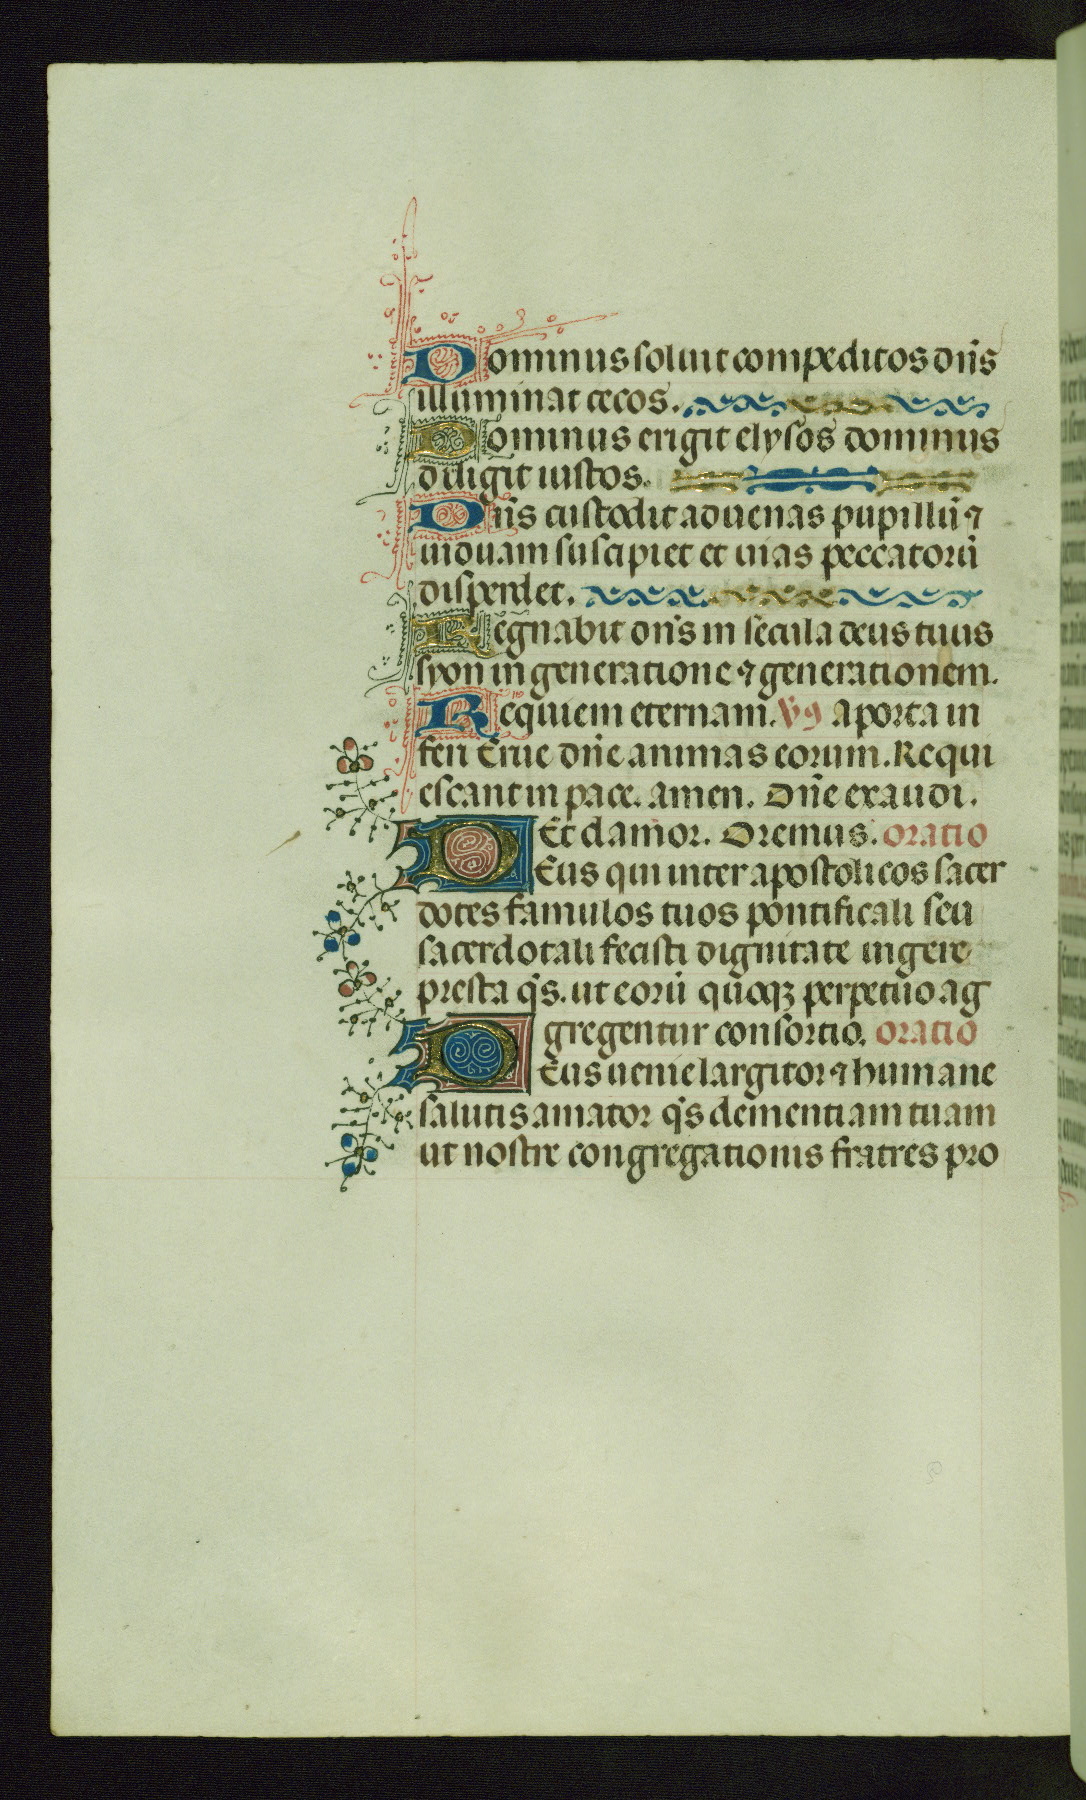 Dominus soluit compeditos dn̄s
illuminat cecos.
Dominus erigit elysos dominus
diligit iustos.
Dn̄s custodit aduenas pupillū ⁊
uiduam suscipiet et uias peccatorū
disperdet.
Regnabit dn̄s in secula deus tuus
syon in generatione ⁊ generationem.
Requiem eternam. Vꝰ A porta in
feri Erue dn̄e animas eorum. Requi
escant in pace. amen. Dn̄e exaudi.
Et clamor. Oremus. oratio
Deus qui inter apostolicos sacer
dotes famulos tuos pontificali seu
sacerdotali fecisti dignitate uigere
presta q̄s. ut eorū quoqꝫ perpetuo ag
gregentur consortio. oratio
Deus uenie largitor ⁊ humane
salutis amator q̄s clementiam tuam
ut nostre congregationis fratres pro